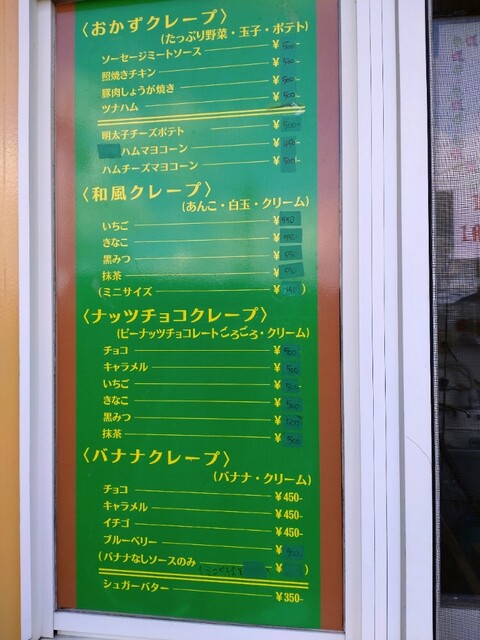 〈おかずクレープ〉
(たっぷり野菜・玉子・ポテト)
ソーセージミートソース ¥500-
照焼きチキン ¥
豚肉しょうが焼き ¥500-
ツナハム ¥500-
明太子チーズポテト ¥500-
ハムマヨコーン ¥
ハムチーズマヨコーン ¥500-
〈和風クレープ〉
(あんこ・白玉・クリーム)
いちご ¥550
きなこ ¥
黒みつ ¥
抹茶 ¥
(ミニサイズ ¥)
〈ナッツチョコクレープ〉
(ピーナッツチョコレートごろごろ・クリーム)
チョコ ¥500
キャラメル ¥500
いちご ¥500
きなこ ¥500
黒みつ ¥500
抹茶 ¥500
〈バナナクレープ〉
(バナナ・クリーム)
チョコ ¥450-
キャラメル ¥450-
イチゴ ¥450-
ブルーベリー ¥500
(バナナなしソースのみ ¥)
シュガーバター ¥350-